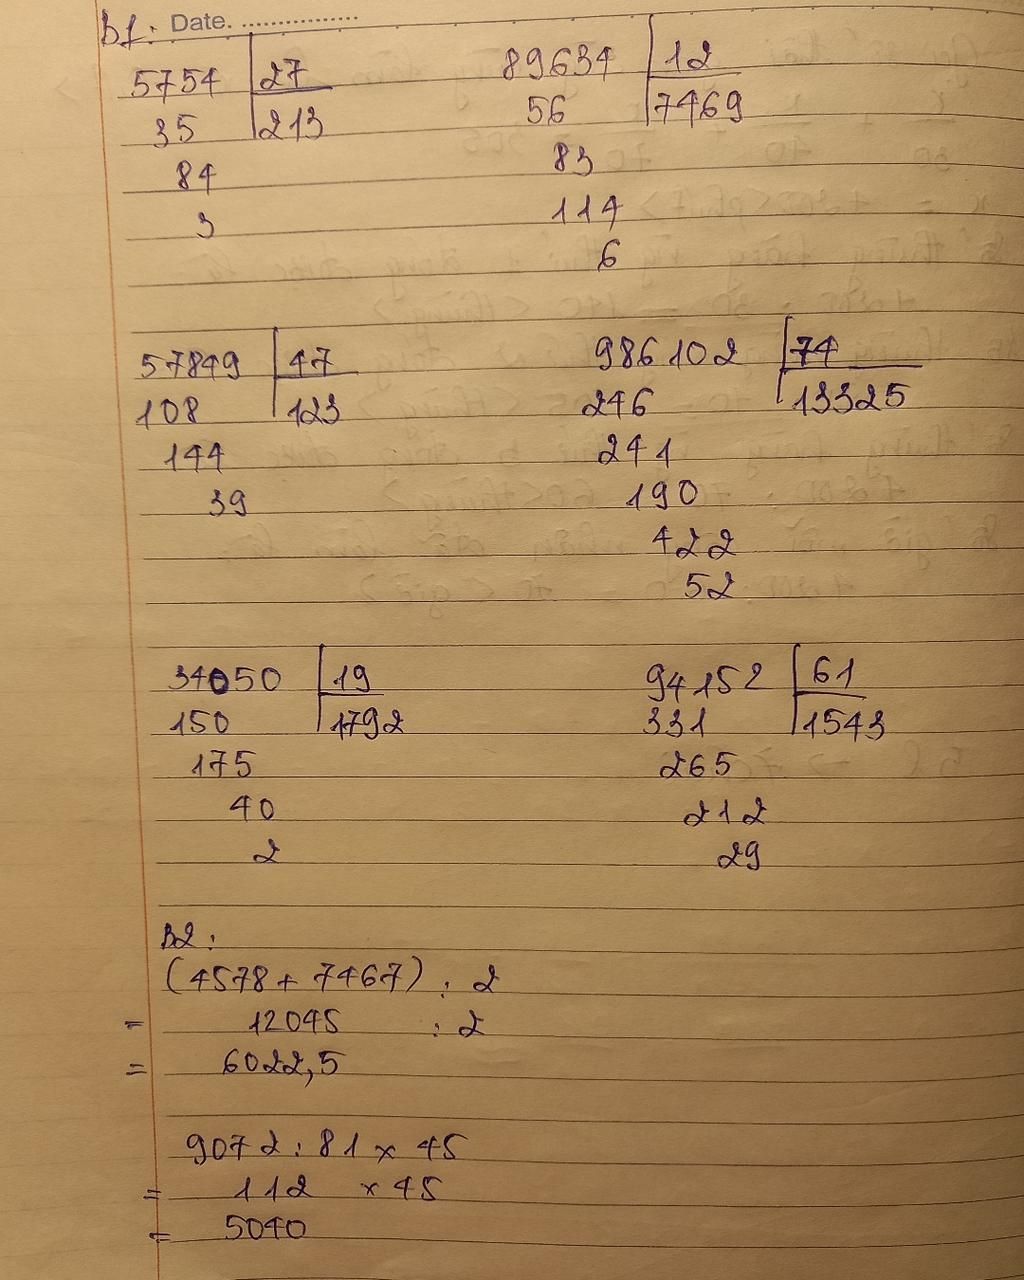 B1: Date. ..................
5754 27
35 213
84
3
89634 12
56 7469
83
114
6
57849 47
108 123
144
39
986102 74
246 13325
241
190
422
52
34050 19
150 1792
175
40
2
94152 61
331 1543
265
212
29
B2:
(4578 + 7467) : 2
= 12045 : 2
= 6022,5
9072 : 81 x 45
= 112 x 45
= 5040